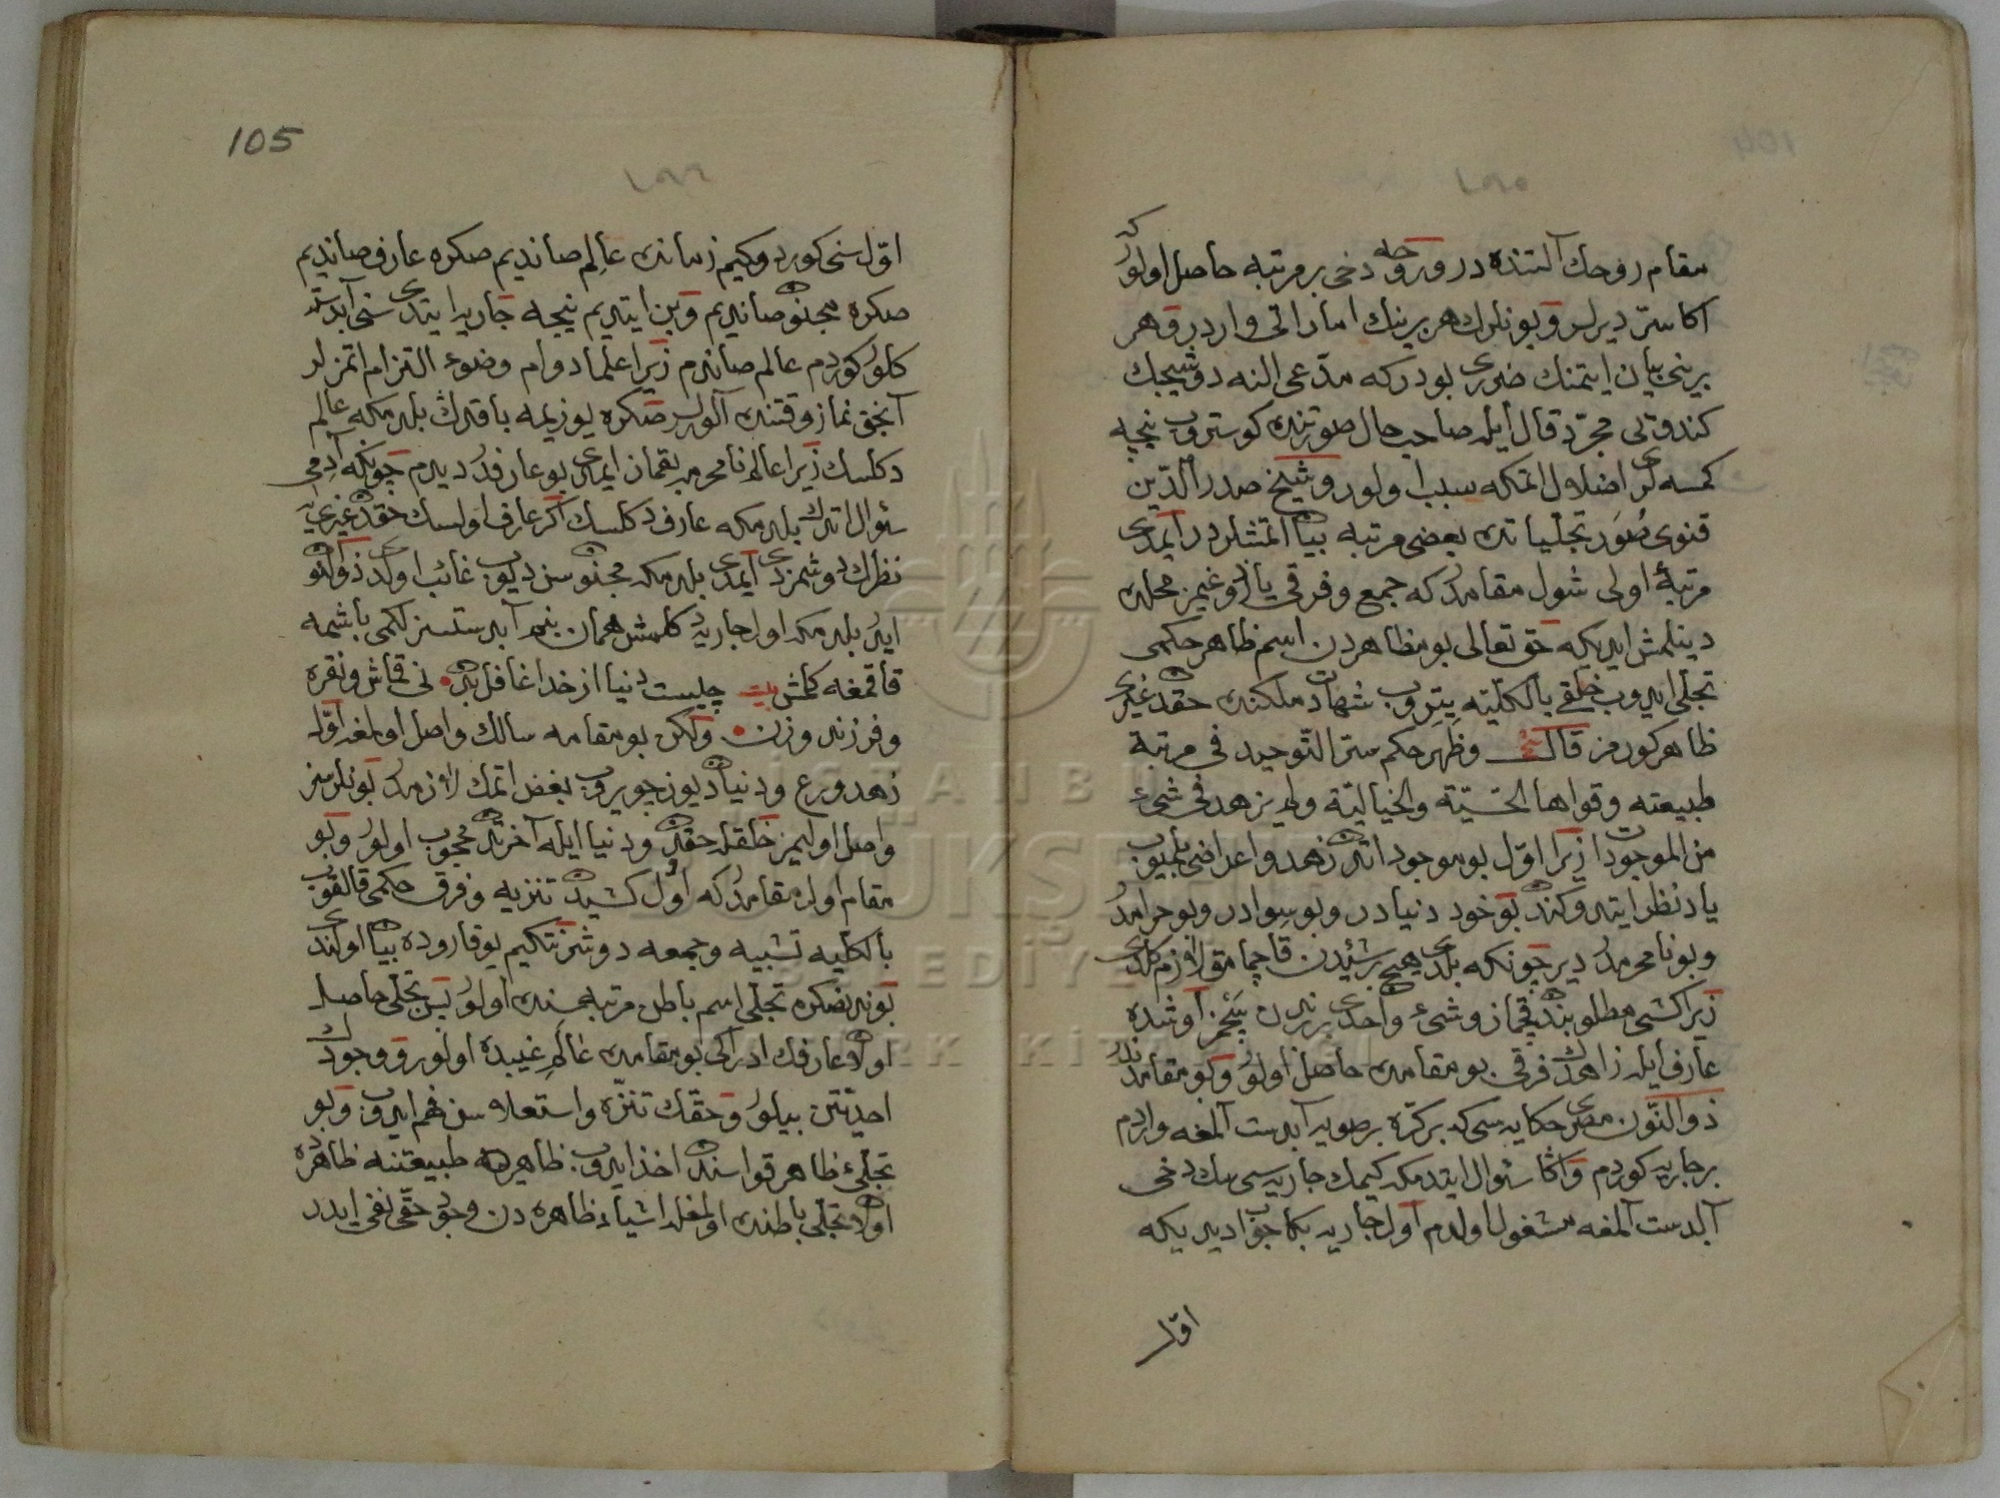 مقام روحك آلتنده در و روحه دخى بر مرتبه حاصل اولور كه
اكا سرّ ديرلر و بونلرك هر برينك اماراتى واردر و هر
برينى بيان ايتمنك ضررى بودركه مدّعى النه دوشيجك
كندوتى مجرّد قال ايله صاحب حال صورتنده كوستروب نيجه
كمسه لرى اضلال اتمكه سبب اولور و شيخ صدر الدّين
قنوى صُوَر تجلّياتدن بعضى مرتبه بيان اتمشلردر ايمدى
مرتبهٔ اولى شول مقامدر كه جمع و فرقى ياز و غيمز محلده
دينلمش ايديكه حق تعالى بو مظاهردن اسم ظاهر حكمى
تجلّى ايدوب خلقى بالكلّيّه يتروب شهادت ملكنده حقدن غيرى
ظاهر كورمز قال شيخ وظهر حكم سرّ التّوحيد فى مرتبة
طبيعته وقواها الحسّيّة والخياليّة ولم يزهد فى شىء
من الموجودات زيرا اوّل بو موجوداتدن زهد و اعراضى بلميوب
ياد نظر ايتدوكندن بو خود دنيادر و بو سوادر و بو حرامدر
و بو نامحرمدر دير چونكه بلدى هيچ بر شيئدن قاچمامق لازم كلدى
زيرا كشى مطلوبندن قچماز و شىء واحدى برندن بچمز اوشده
عارف ايله زاهدك فرقى بو مقامدن حاصل اولور و بو مقامدندر
ذو النّون مصرى حكايه سى كه بر كرّه بر صويه آبدست آلمغه واردم
بر جاريه كوردم و اكا سئوال ايتدمكه كيمك جاريه سى سك دخى
آبدست آلمغه مشغول اولدم اول جاريه بكا جواب ديديكه
اوّل
105
١٩٥
١٩٦
اوّل سنى كوردوكيم زمانده عالم صاندم صكره عارف صانديم
صكره مجنون صانديم و بن ايتديم نيجه جاريه ايتدى سنى آبدسته
كلور كوردم عالم صاندم زيرا علما دوام وضوء التزام اتمزلر
آنجق نماز وقتنده آلورلر صكره يوزيمه باقدك بلدمكه عالم
دكلسك زيرا عالم نامحرمه بقمق ايمدى بو عارفدر ديدم چونكه آدمى
سئوال اتدك بلدمكه عارف دكلسك اكر عارف اولسك حقدن غيرى يه
نظرك دوشمزدى ايمدى بلدمكه مجنونسن ديوب غائب اولدى ذوالنّون
ايدر بلدمكه اول جاريه دكلمش همان بنم آبدستسزلكمى باشمه
قاقمغه كلمش بيت چيست دنيا از خدا غافل بدن نى قماش و نقره
و فرزند و زن ولكن بو مقامه سالك واصل اولمغه اوّلا
زهد و ورع و دنيادن يوز چويروب بغض اتمك لازمدر بونلرسز
واصل اوليمز خلقله حقدن و دنيا ايله آخرتدن محجوب اولور و بو
مقام اول مقامدر كه اوّل كشيدن تنزيه و فرق حكمى قالقوب
بالكلّيه تشبيه و جمعه دوشر نتكيم يوقاروده بيان اولندى
بوندن صكره تجلّى اسم باطن مرتبه سنده اولور بس تجلّى حاصل
اولان عارفك ادراكى بو مقامده عالم غيبده اولور و وجودك
احديّتن بيلور و حقّك تنزّه و استعلاسن فهم ايدوب و بو
تجلّئ ظاهر قواسندن اخذ ايدوب ظاهرده طبيعتنه ظاهر
اولان تجلّى باطنده اولمغله اشياء ظاهره دن وجود حقّى نفى ايدر